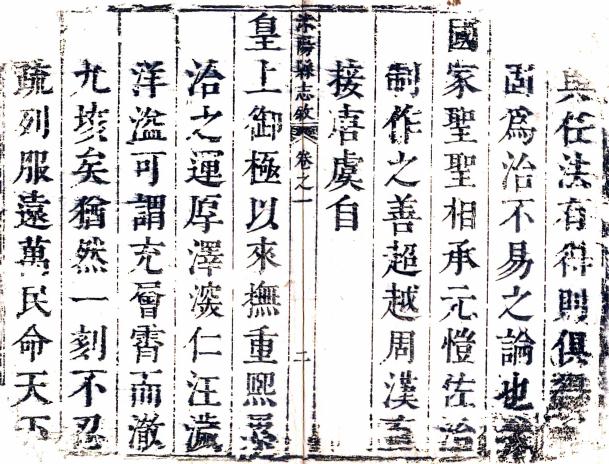 與任法有得則俱
固爲治不易之論也
國家聖聖相承元愷佐治
制作之善超越周漢直
接唐虞自
沭陽縣志敘 卷之一 二
皇上御極以來撫重熙累
洽之運厚澤深仁汪濊
洋溢可謂充層霄而澈
九垓矣猶然一刻不忍
疏列服遠萬民命天下